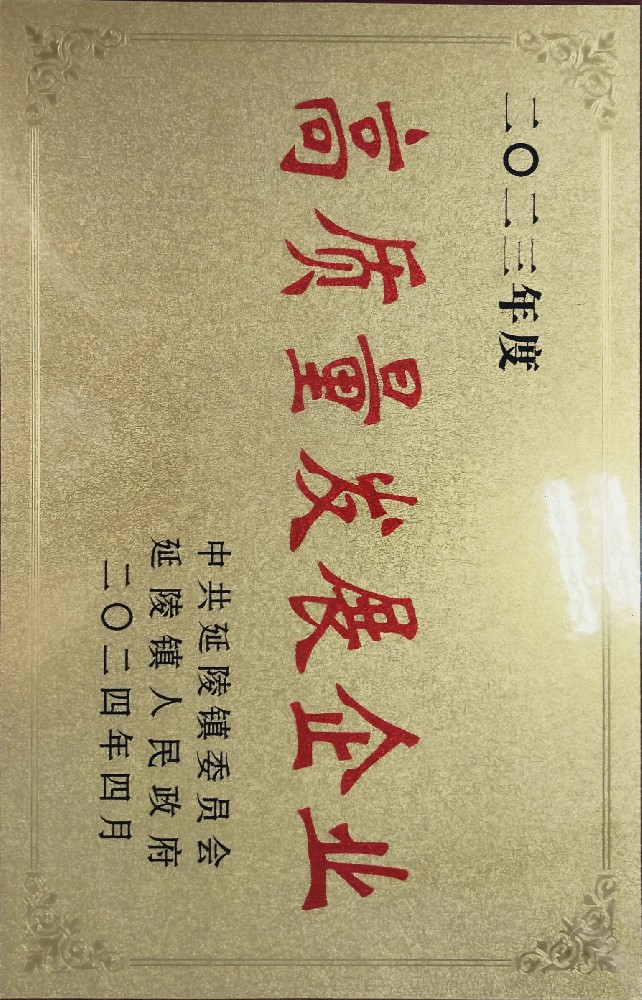 二〇二三年度
高质量发展企业
中共延陵镇委员会
延陵镇人民政府
二〇二四年四月